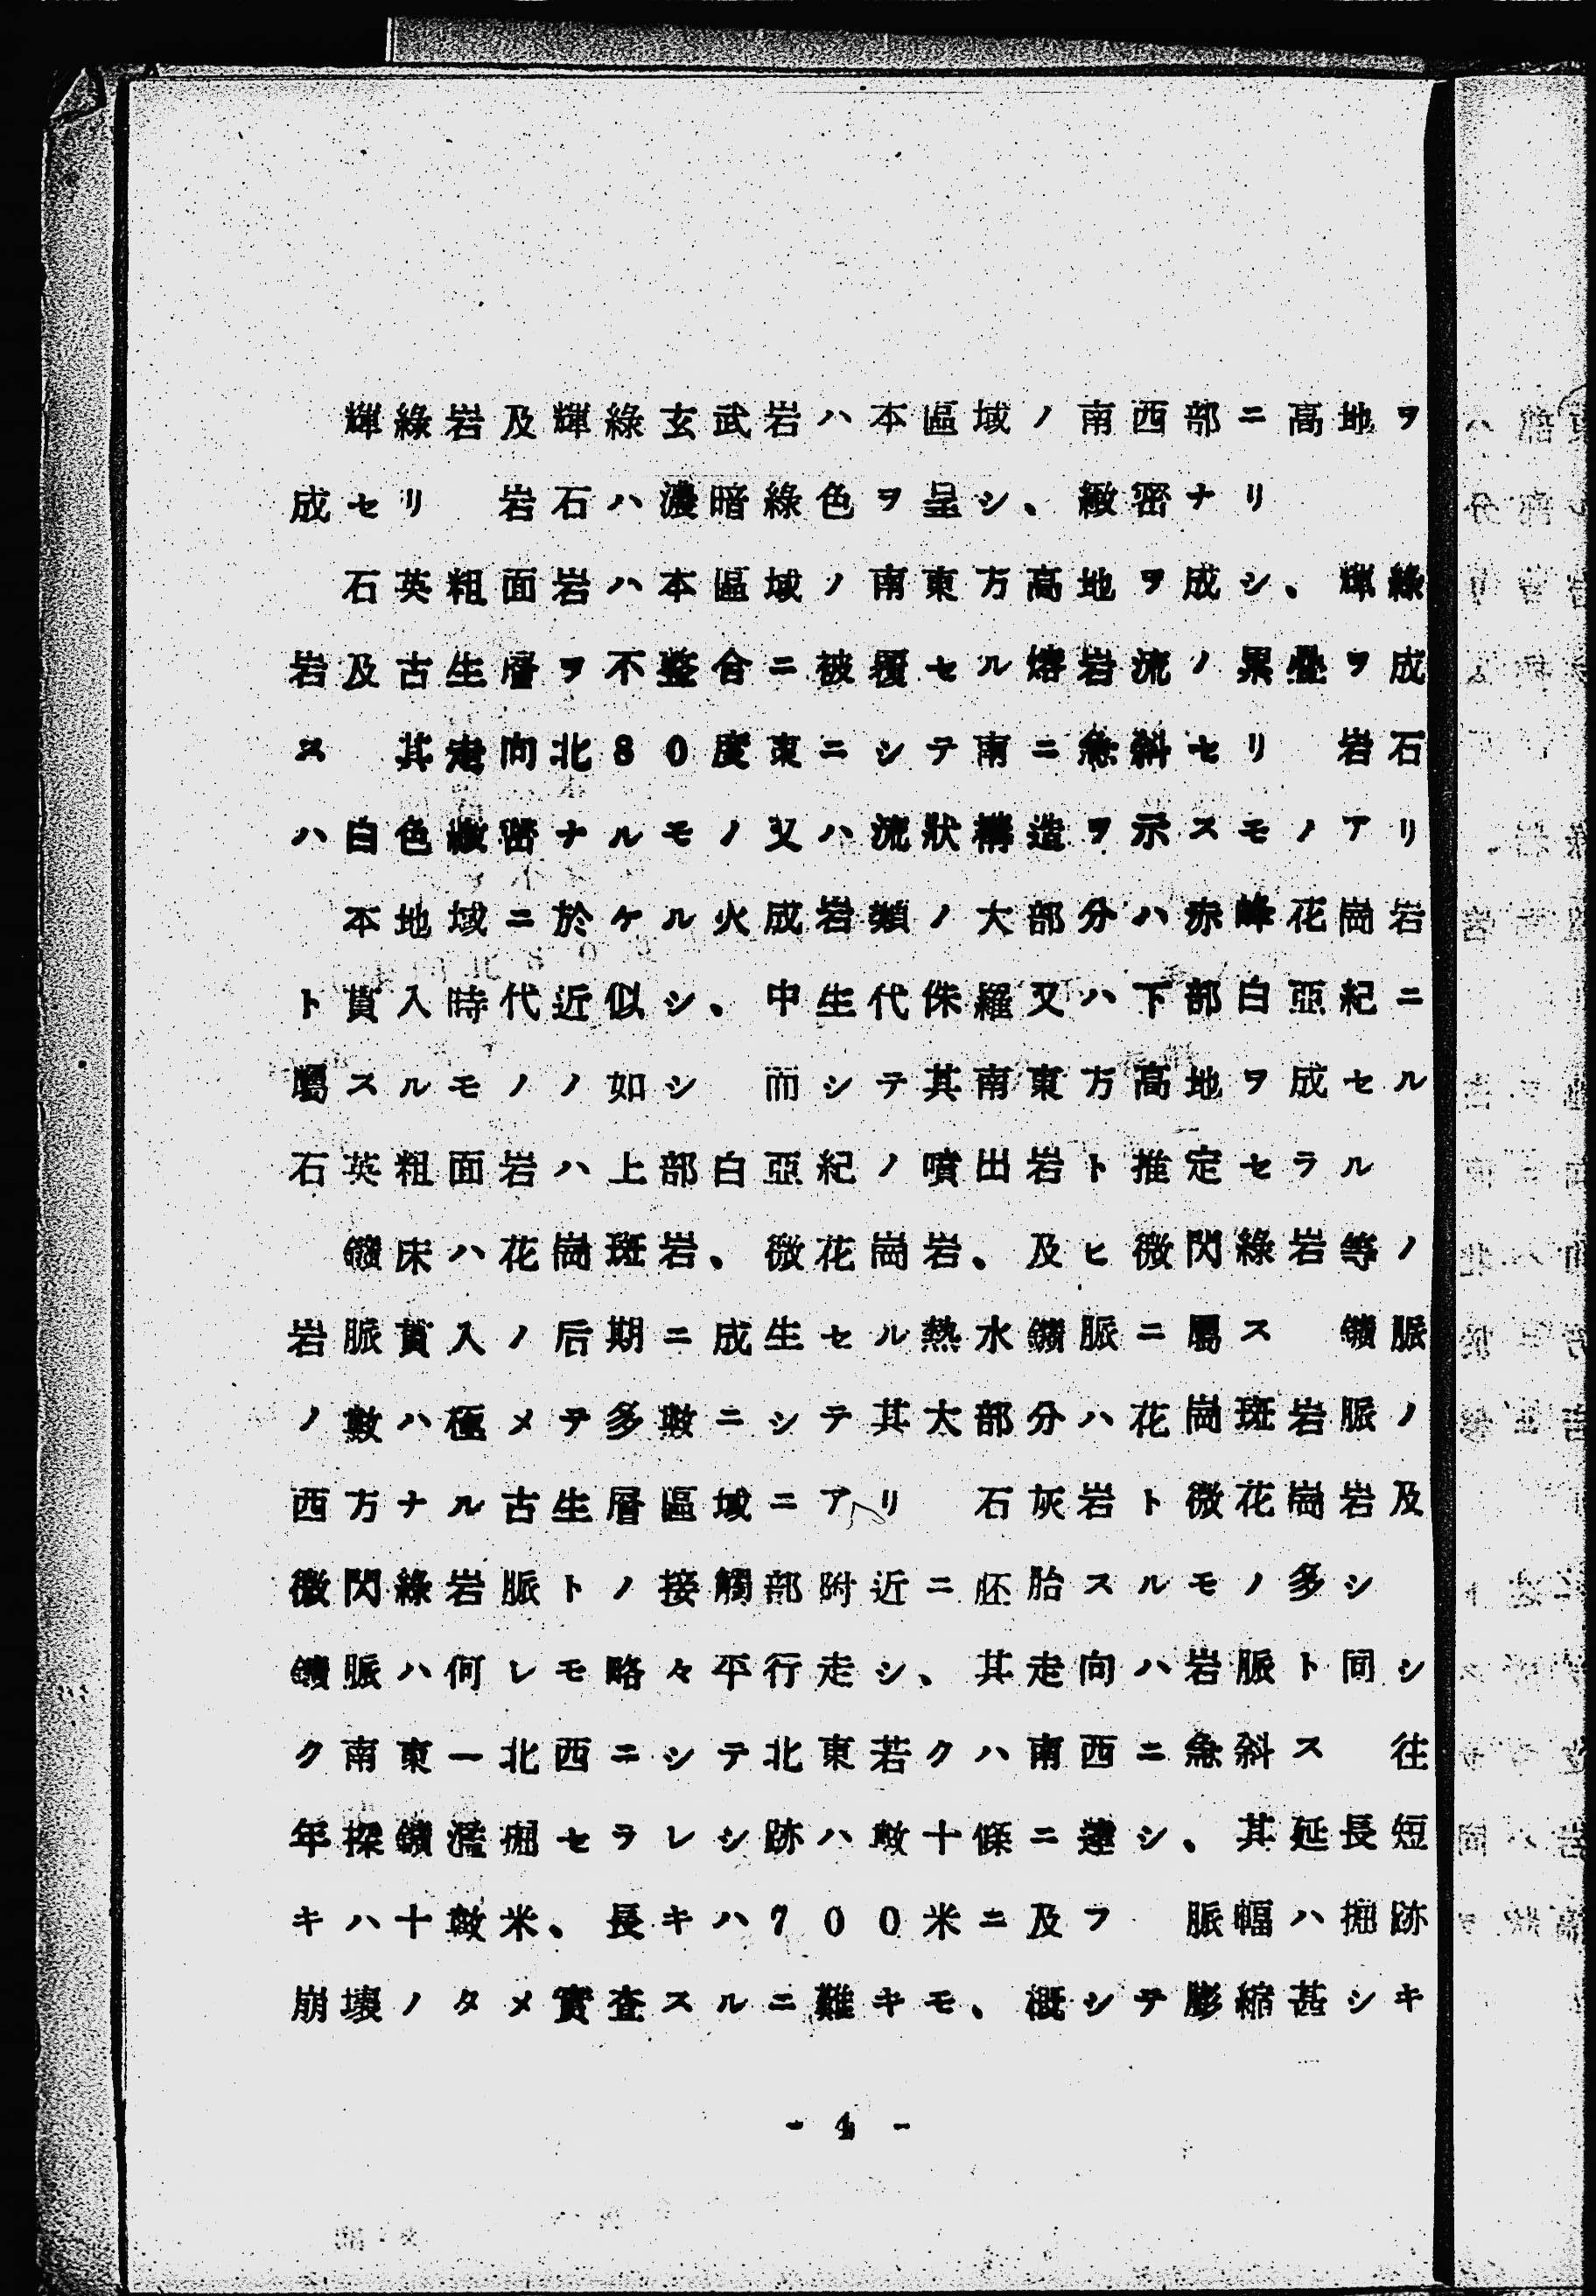 輝綠岩及輝綠玄武岩ハ本區域ノ南西部ニ高地ヲ
成セリ　岩石ハ濃暗綠色ヲ呈シ、緻密ナリ
石英粗面岩ハ本區域ノ南東方高地ヲ成シ、輝綠
岩及古生層ヲ不整合ニ被覆セル熔岩流ノ累疊ヲ成
ス　其走向北80度東ニシテ南ニ急斜セリ　岩石
ハ白色緻密ナルモノ又ハ流狀構造ヲ示スモノアリ
本地域ニ於ケル火成岩類ノ大部分ハ赤峰花崗岩
ト貫入時代近似シ、中生代侏羅又ハ下部白亞紀ニ
屬スルモノノ如シ　而シテ其南東方高地ヲ成セル
石英粗面岩ハ上部白亞紀ノ噴出岩ト推定セラル
鑛床ハ花崗斑岩、微花崗岩、及ヒ微閃綠岩等ノ
岩脈貫入ノ后期ニ成生セル熱水鑛脈ニ屬ス　鑛脈
ノ數ハ極メテ多數ニシテ其大部分ハ花崗斑岩脈ノ
西方ナル古生層區域ニアリ　石灰岩ト微花崗岩及
微閃綠岩脈トノ接觸部附近ニ胚胎スルモノ多シ
鑛脈ハ何レモ略々平行走シ、其走向ハ岩脈ト同シ
ク南東ー北西ニシテ北東若クハ南西ニ急斜ス　往
年探鑛濫掘セラレシ跡ハ數十條ニ達シ、其延長短
キハ十數米、長キハ700米ニ及フ　脈幅ハ掘跡
崩壞ノタメ實査スルニ難キモ、概シテ膨縮甚シキ
- 4 -